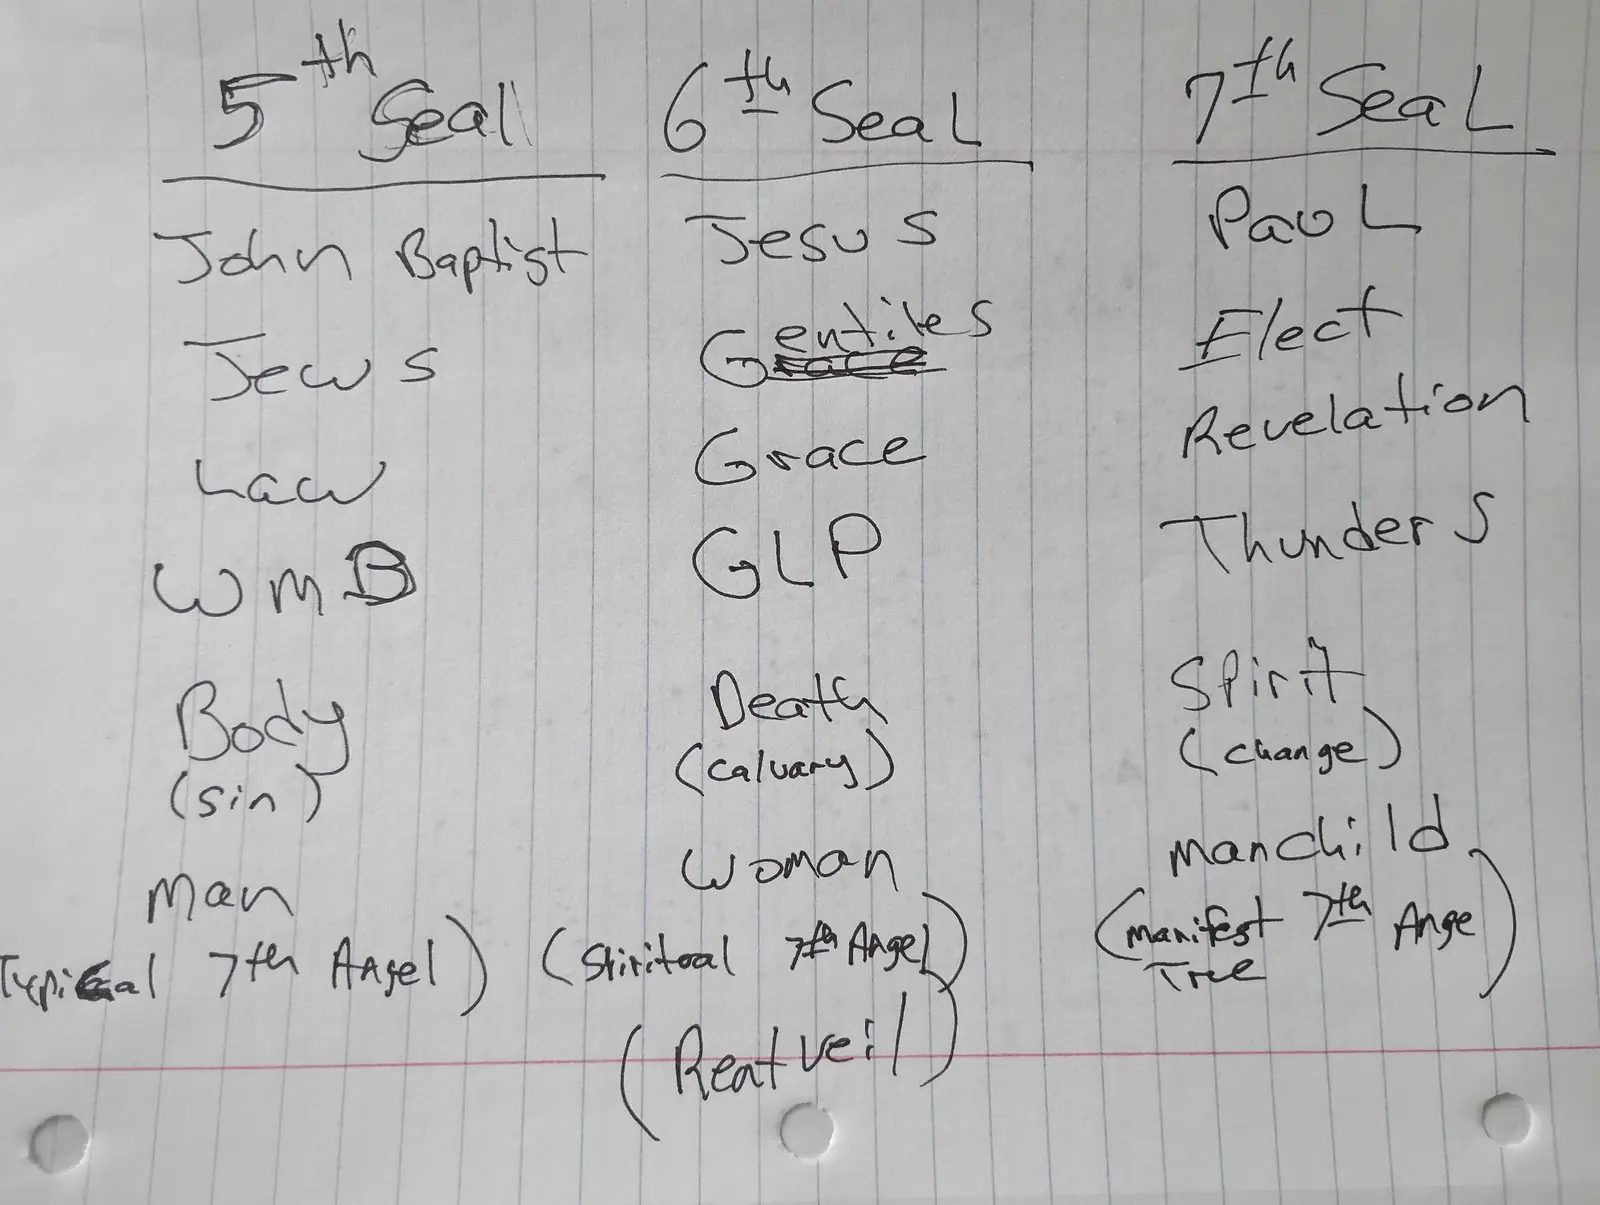 5th Seal
John Baptist
Jews
Law
WMB
Body
(sin)
Man
Typical 7th Angel)
6th SeaL
Jesus
Gentiles
Grace
GLP
Death
(calvary)
Woman
(Spiritual 7th Angel)
(Reat veil)
7th SeaL
PauL
Elect
Revelation
Thunders
Spirit
(change)
manchild
(manifest 7th Ange)
Tree